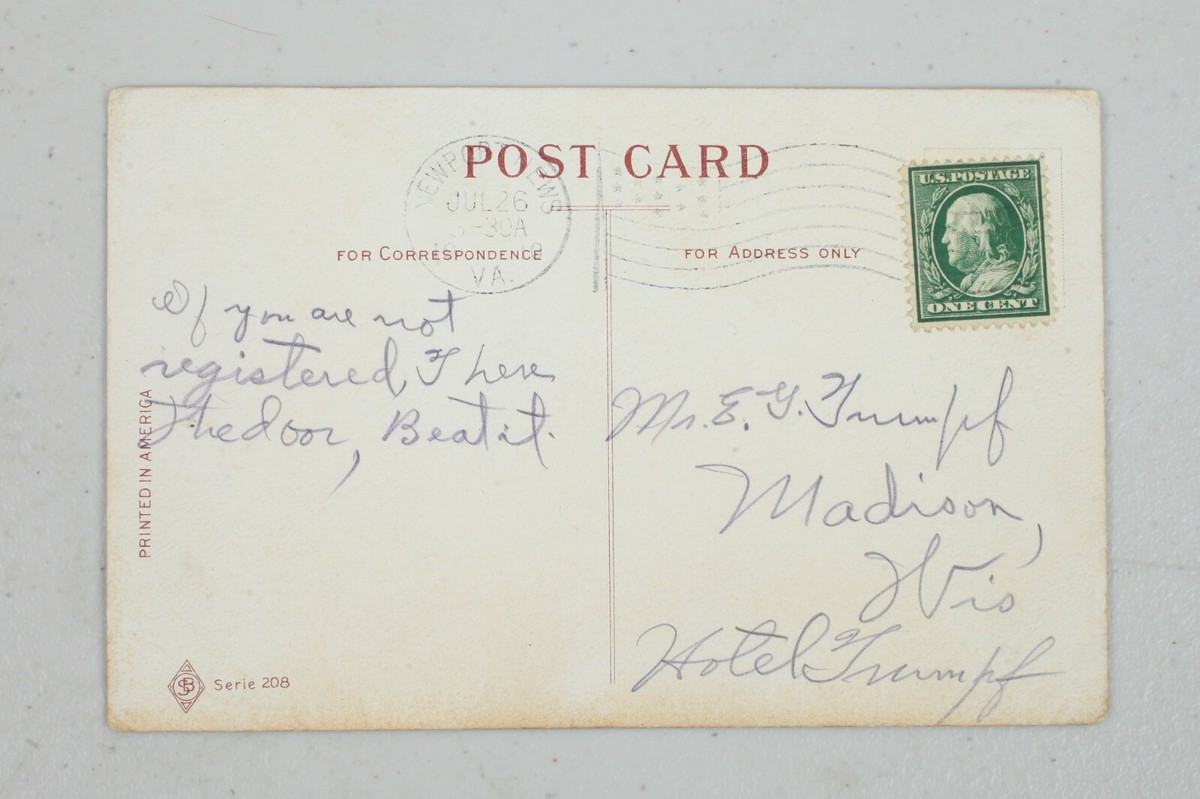 POST CARD
NEWPORT NEWS
JUL 26
-30A
VA.
FOR CORRESPONDENCE
FOR ADDRESS ONLY
U.S. POSTAGE
ONE CENT
If you are not
registered, There
Thedoor, Beat it.
Mr. E. G. Trumpf
Madison,
Wis
Hotel Trumpf
PRINTED IN AMERICA
SB
Serie 208